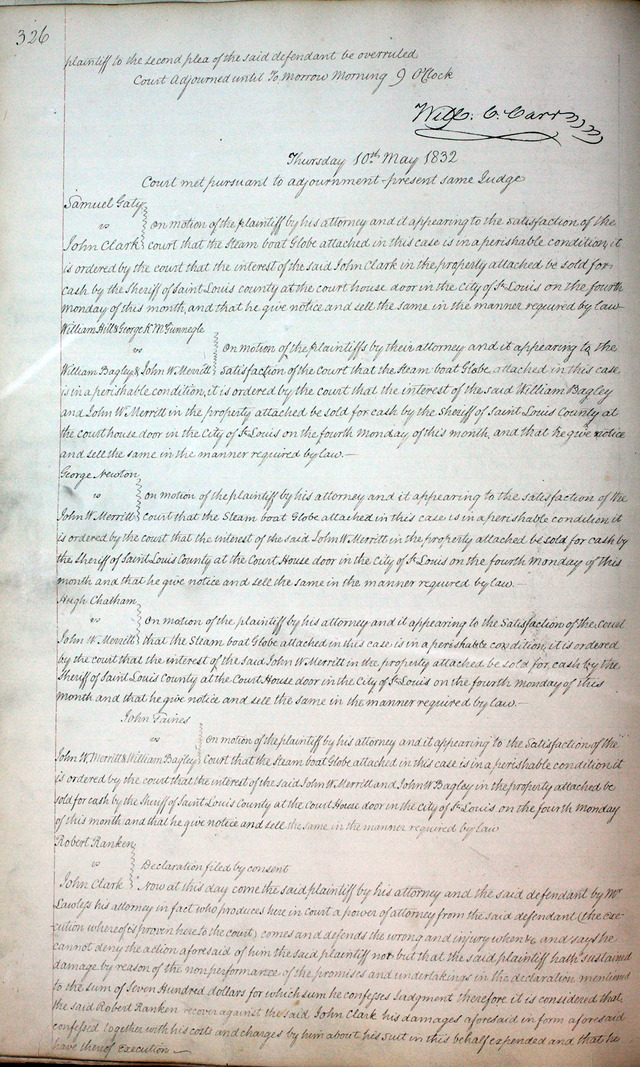 326
plaintiff to the second plea of the said defendant be overruled
Court Adjourned until To Morrow Morning 9 OClock
Will. C. Carr
Thursday 10th May 1832
Court met pursuant to adjournment - present same Judge
Samuel Gaty
vs
John Clark
on motion of the plaintiff by his attorney and it appearing to the satisfaction of the
court that the Steam boat Globe attached in this case is in a perishable condition, it
is ordered by the court that the interest of the said John Clark in the property attached be sold for
cash by the Sheriff of Saint Louis county at the court house door in the City of St Louis on the fourth
monday of this month, and that he give notice and sell the same in the manner required by law
William Hill & George K. McGunnegle
vs
William Bagley & John W. Merritt
on motion of the plaintiffs by their attorney and it appearing to the
satisfaction of the Court that the Steam boat Globe attached in this case
is in a perishable condition, it is ordered by the court that the interest of the said William Bagley
and John W Merritt in the property attached be sold for cash by the Sheriff of Saint Louis County at
the court house door in the City of St Louis on the fourth Monday of this month, and that he give notice
and sell the same in the manner required by law. —
George Newton
vs
John W. Merritt
on motion of the plaintiff by his attorney and it appearing to the satisfaction of the
Court that the Steam boat Globe attached in this case is in a perishable condition it
is ordered by the court that the interest of the said John W Merritt in the property attached be sold for cash by
the Sheriff of Saint Louis County at the Court House door in the City of St Louis on the fourth Monday of this
month and that he give notice and sell the same in the manner required by law. —
Hugh Chatham
vs
John W. Merritt
on motion of the plaintiff by his attorney and it appearing to the Satisfaction of the court
that the Steam boat Globe attached in this case is in a perishable condition, it is ordered
by the court that the interest of the said John W. Merritt in the property attached be sold for cash by the
Sheriff of Saint Louis County at the Court House door in the City of St Louis on the fourth Monday of this
Month and that he give notice and sell the same in the manner required by law. —
John
vs
John W. Merritt & William Bagley
on motion of the plaintiff by his attorney and it appearing to the Satisfaction of the
Court that the Steam boat Globe attached in this case is in a perishable condition it
is ordered by the court that the interest of the said John W Merritt and John W Bagley in the property attached be
sold for cash by the Sheriff of Saint Louis County at the court House door in the city of St Louis on the fourth Monday
of this month and that he give notice and sell the same in the manner required by law
Robert Ranken
vs
John Clark
Declaration filed by consent
Now at this day come the said plaintiff by his attorney and the said defendant by Mr
Lawless his attorney in fact who produces here in court a power of attorney from the said defendant (the exe-
cution whereof is proven here to the court) comes and defends the wrong and injury when &c and says he
cannot deny the action aforesaid of him the said plaintiff nor but that the said plaintiff hath sustained
damage by reason of the nonperformance of the promises and undertakings in the declaration mentioned
to the sum of Seven Hundred dollars for which sum he confesses Judgment Therefore it is considered that
the said Robert Ranken recover against the said John Clark his damages aforesaid in form aforesaid
confessed together with his costs and charges by him about his suit in this behalf expended and that he
have thereof Execution —